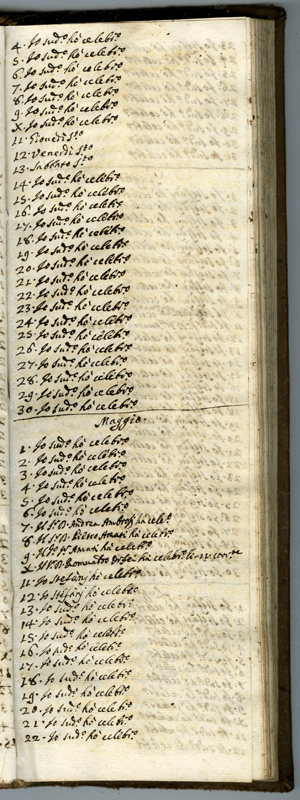 4. Io sud.º hò celebr.º
5. Io sud.º hò celebr.º
6. Io sud.º hò celebr.º
7. Io sud.º hò celebr.º
8. Io sud.º hò celebr.º
9. Io sud.º hò celebr.º
X. Io sud.º hò celebr.º
11. Giovedi S.to
12. Venerdi S.to
13. Sabbato S.to
14. Io sud.º hò celebr.º
15. Io sud.º hò celebr.º
16. Io sud.º hò celebr.º
17. Io sud.º hò celebr.º
18. Io sud.º hò celebr.º
19. Io sud.º hò celebr.º
20. Io sud.º hò celebr.º
21. Io sud.º hò celebr.º
22. Io sud.º hò celebr.º
23. Io sud.º hò celebr.º
24. Io sud.º hò celebr.º
25. Io sud.º hò celebr.º
26. Io sud.º hò celebr.º
27. Io sud.º hò celebr.º
28. Io sud.º hò celebr.º
29. Io sud.º hò celebr.º
30. Io sud.º hò celebr.º
Maggio.
1. Io sud.º hò celebr.º
2. Io sud.º hò celebr.º
3. Io sud.º hò celebr.º
4. Io sud.º hò celebr.º
5. Io sud.º hò celebr.º
6. Io sud.º hò celebr.º
7. Il S.r D. Andrea hà celeb.º
8. Il S.r D. Pietro Amati hà celebr.º
9. Amati hà celebr.º
X. Il S.r D. hà celebr.º
11. Io Stefanj hò celebr.º
12. Io Stefanj hò celebr.º
13. Io sud.º hò celebr.º
14. Io sud.º hò celebr.º
15. Io sud.º hò celebr.º
16. Io sud.º hò celebr.º
17. Io sud.º hò celebr.º
18. Io sud.º hò celebr.º
19. Io sud.º hò celebr.º
20. Io sud.º hò celebr.º
21. Io sud.º hò celebr.º
22. Io sud.º hò celebr.º